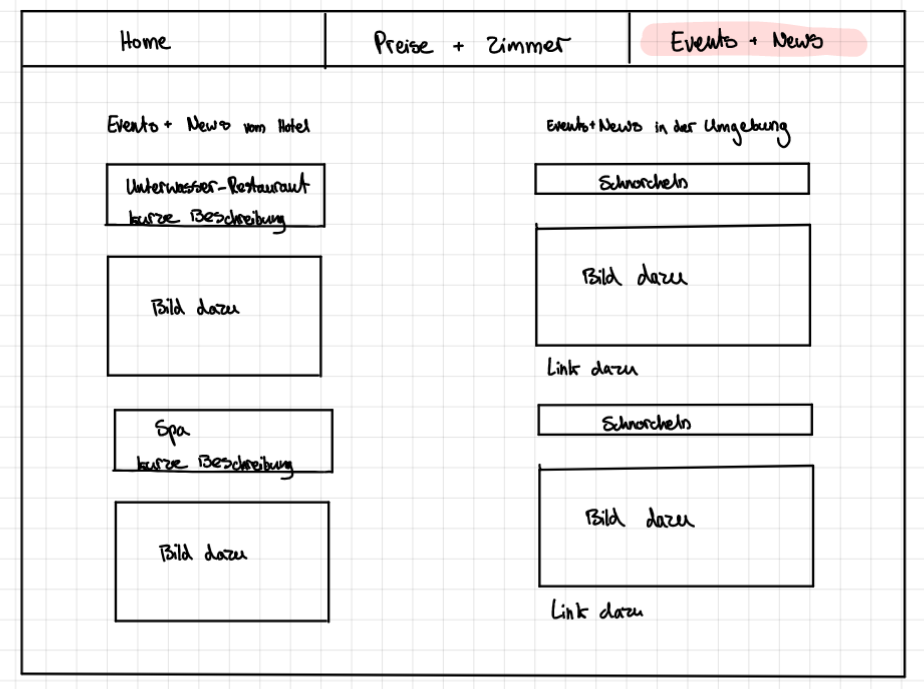 Home
Preise + Zimmer
Events + News
Events + News vom Hotel
Unterwasser-Restaurant
kurze Beschreibung
Bild dazu
Spa
kurze Beschreibung
Bild dazu
Events+News in der Umgebung
Schnorcheln
Bild dazu
Link dazu
Schnorcheln
Bild dazu
Link dazu